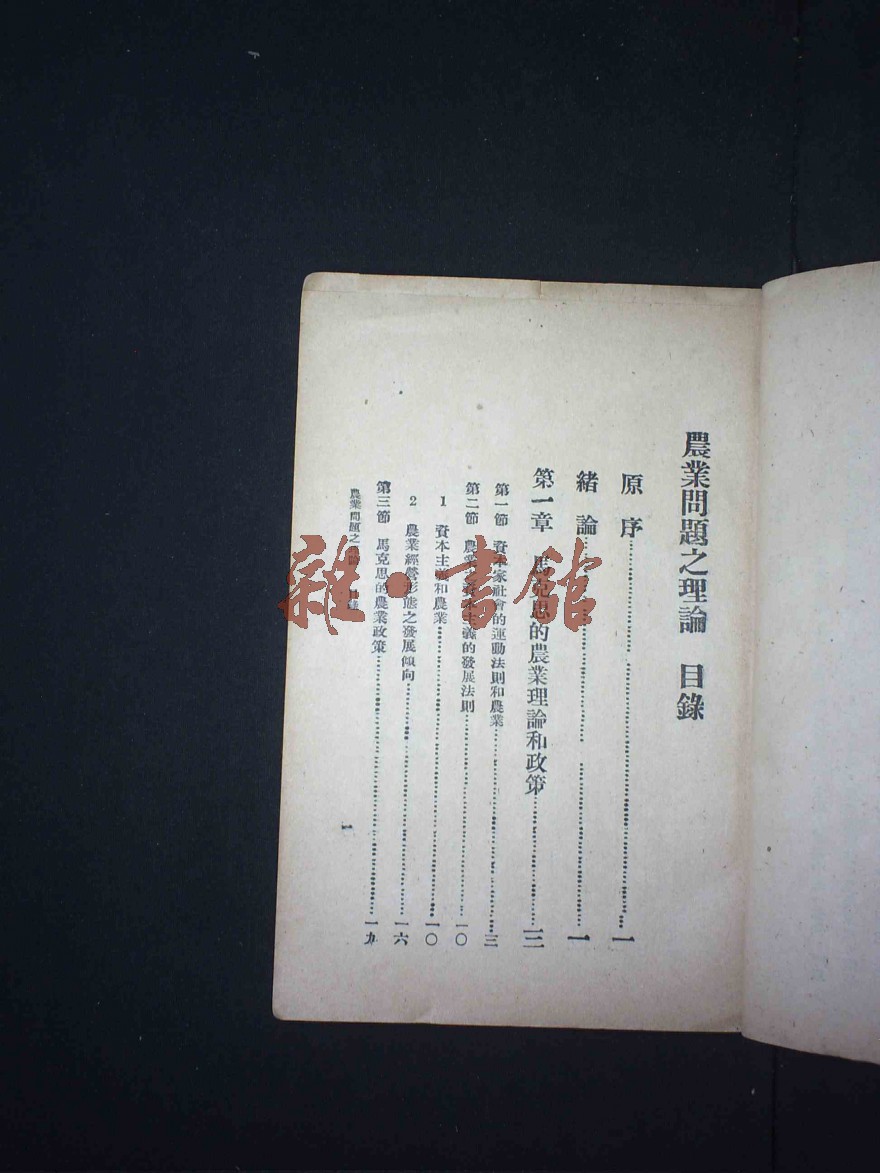 農業問題之理論 目錄
原序……一
緒論……一
第一章 馬克思的農業理論和政策……三
第一節 資本家社會的運動法則和農業……三
第二節 農業之資本主義的發展法則……一〇
1 資本主義和農業……一〇
2 農業經營形態之發展傾向……一六
第三節 馬克思的農業政策……一九
農業問題之理論 目錄
一
雜·書館